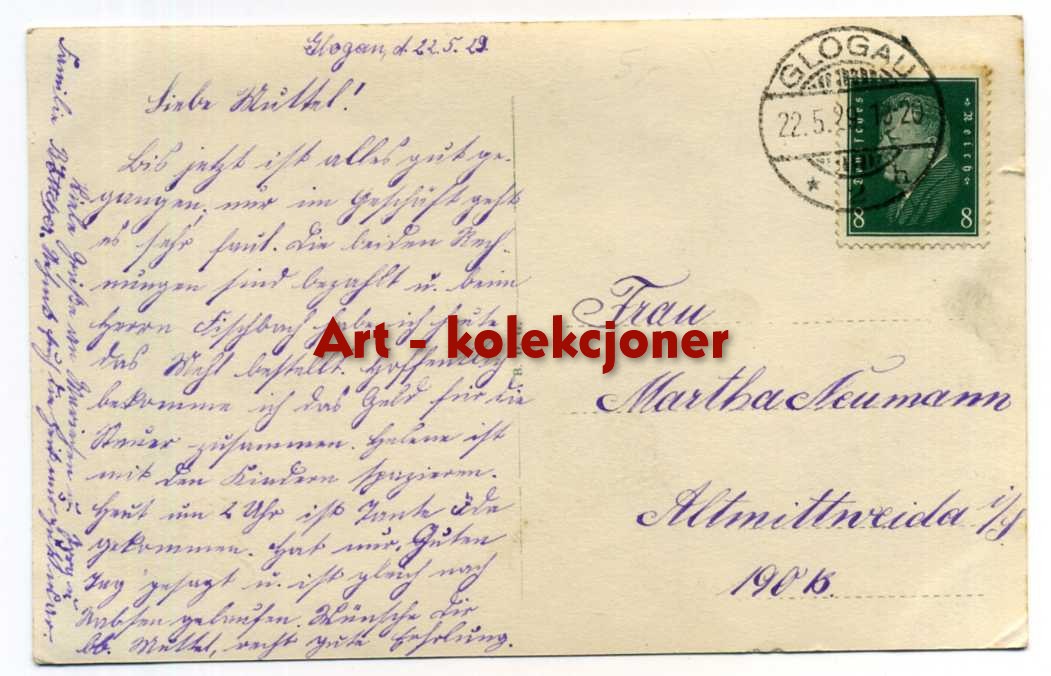 Glogau, d. 22.5.29.
Liebe Muttel!
Bis jetzt ist alles gut ge-
gangen, nur im Geschäft geht
es sehr faul. Die beiden Rech-
nungen sind bezahlt u. beim
Herrn Fischbach habe ich heute
das Mehl bestellt. Hoffentlich
bekomme ich das Geld für die
Steuer zusammen. Helene ist
mit den Kindern spazieren.
Heut um 2 Uhr ist Tante Ida
gekommen. Hat nur "Guten
Tag" gesagt u. ist gleich nach
gelaufen. Wünsche Dir
lb. Muttel, recht gute Erholung.
Viele Grüße an
Familie
GLOGAU
22.5.29 18-20
Deutsches Reich
8 8
Frau
Martha Neumann
Altmittweida i/S
190 B.
Art - kolekcjoner